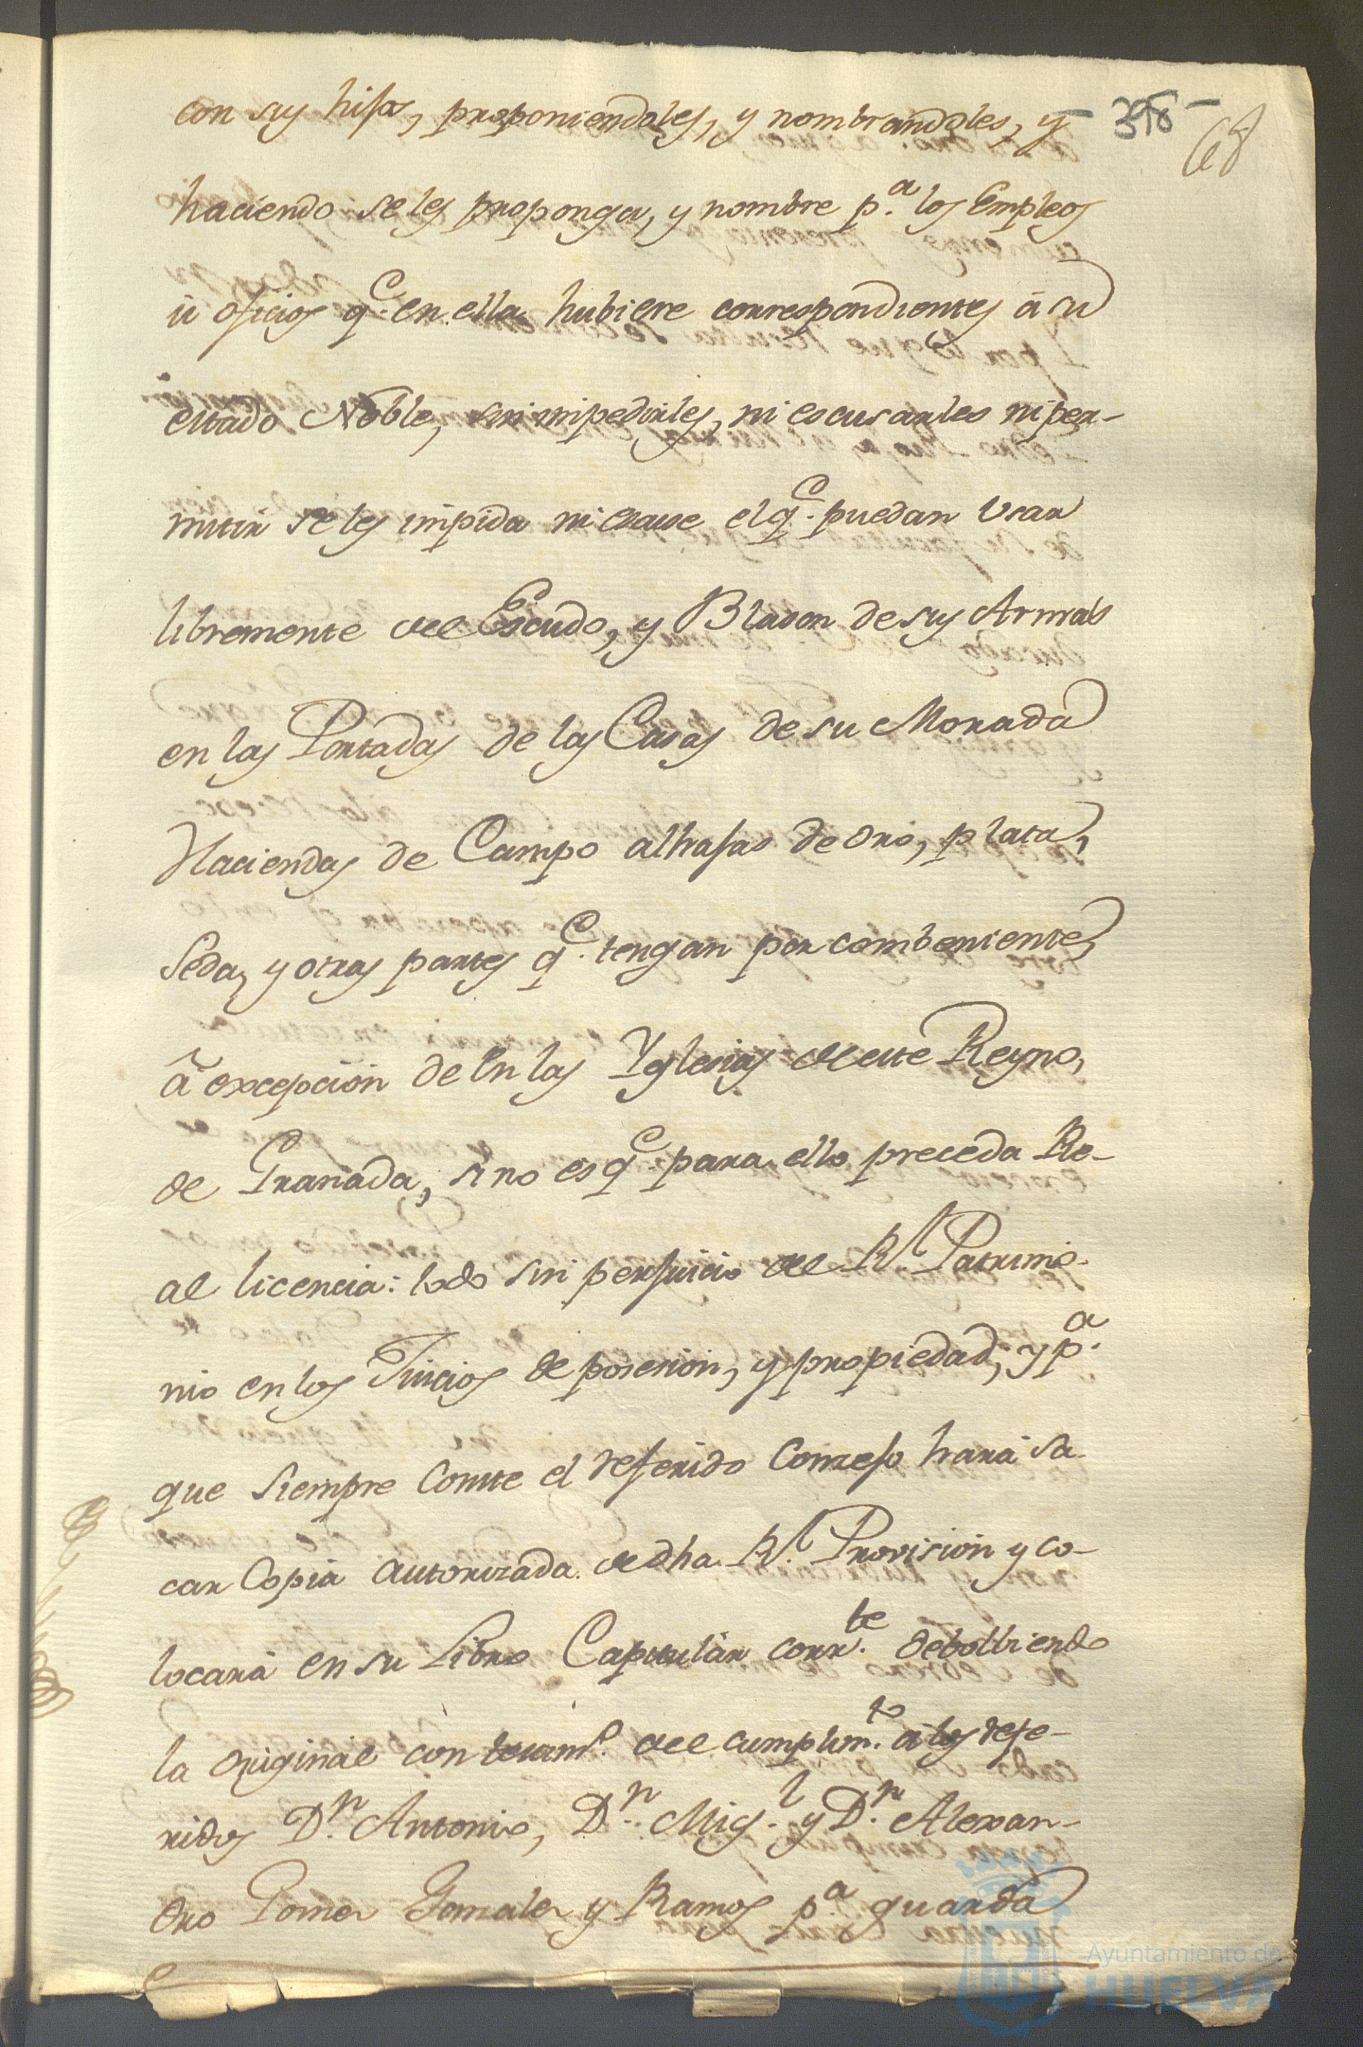 con sus hijos, proponiendoles, y nombrandoles, y
68
haciendo se les proponga, y nombre p.ª los Empleos
ú oficios q.e en ella hubiere correspondientes á su
estado Noble, sin impedirles, ni escusarles ni per-
mitir se les impida ni escuse el q.e puedan Usar
libremente del Escudo, y Blason de sus Armas
en las Portadas de las Casas de su Morada
Haciendas de Campo alhajas de oro, plata,
Seda, y otras partes q.e tengan por combeniente,
á excepción de en las Yglesias de este Reyno,
de Granada, si no es q.e para ello preceda Re-
al licencia: todo sin perjuicio del R.l Patrimo-
nio en los Juicios de posesion, y propiedad, y p.ª
que siempre Conste el referido Conzejo hará sa-
car Copia autorizada de dha R.l Provision y co-
locará en su Libro Capitular corr.te debolbiendo
la original con del cumplim.to á los refe-
ridos D.n Antonio, D.n Mig.l y D.n Alexan-
dro Ponce Gonzalez y Ramos p.ª guarda
Ayuntamiento de
HUELVA